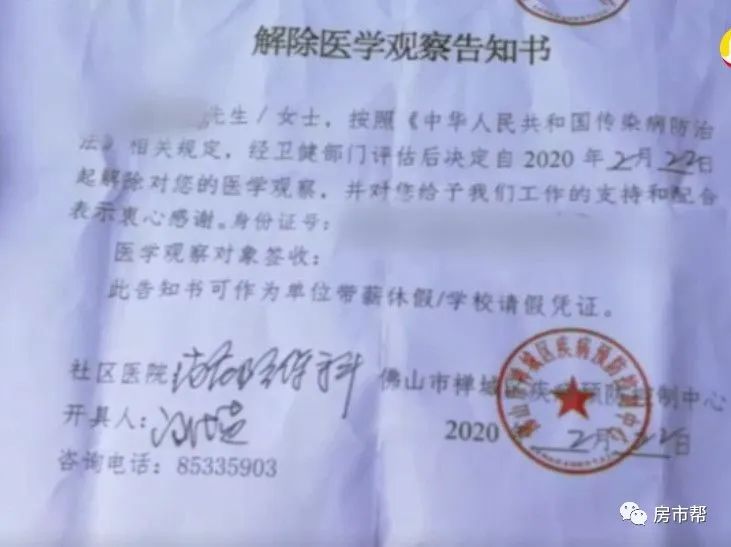 解除医学观察告知书
先生/女士，按照《中华人民共和国传染病防治
法》相关规定，经卫健部门评估后决定自 2020 年2月22日
起解除对您的医学观察，并对您给予我们工作的支持和配合
表示衷心感谢。身份证号：
医学观察对象签收：
此告知书可作为单位带薪休假/学校请假凭证。
社区医院
佛山市禅城区疾病预防控制中心
开具人：
2020 2月22日
咨询电话：85335903
房市帮